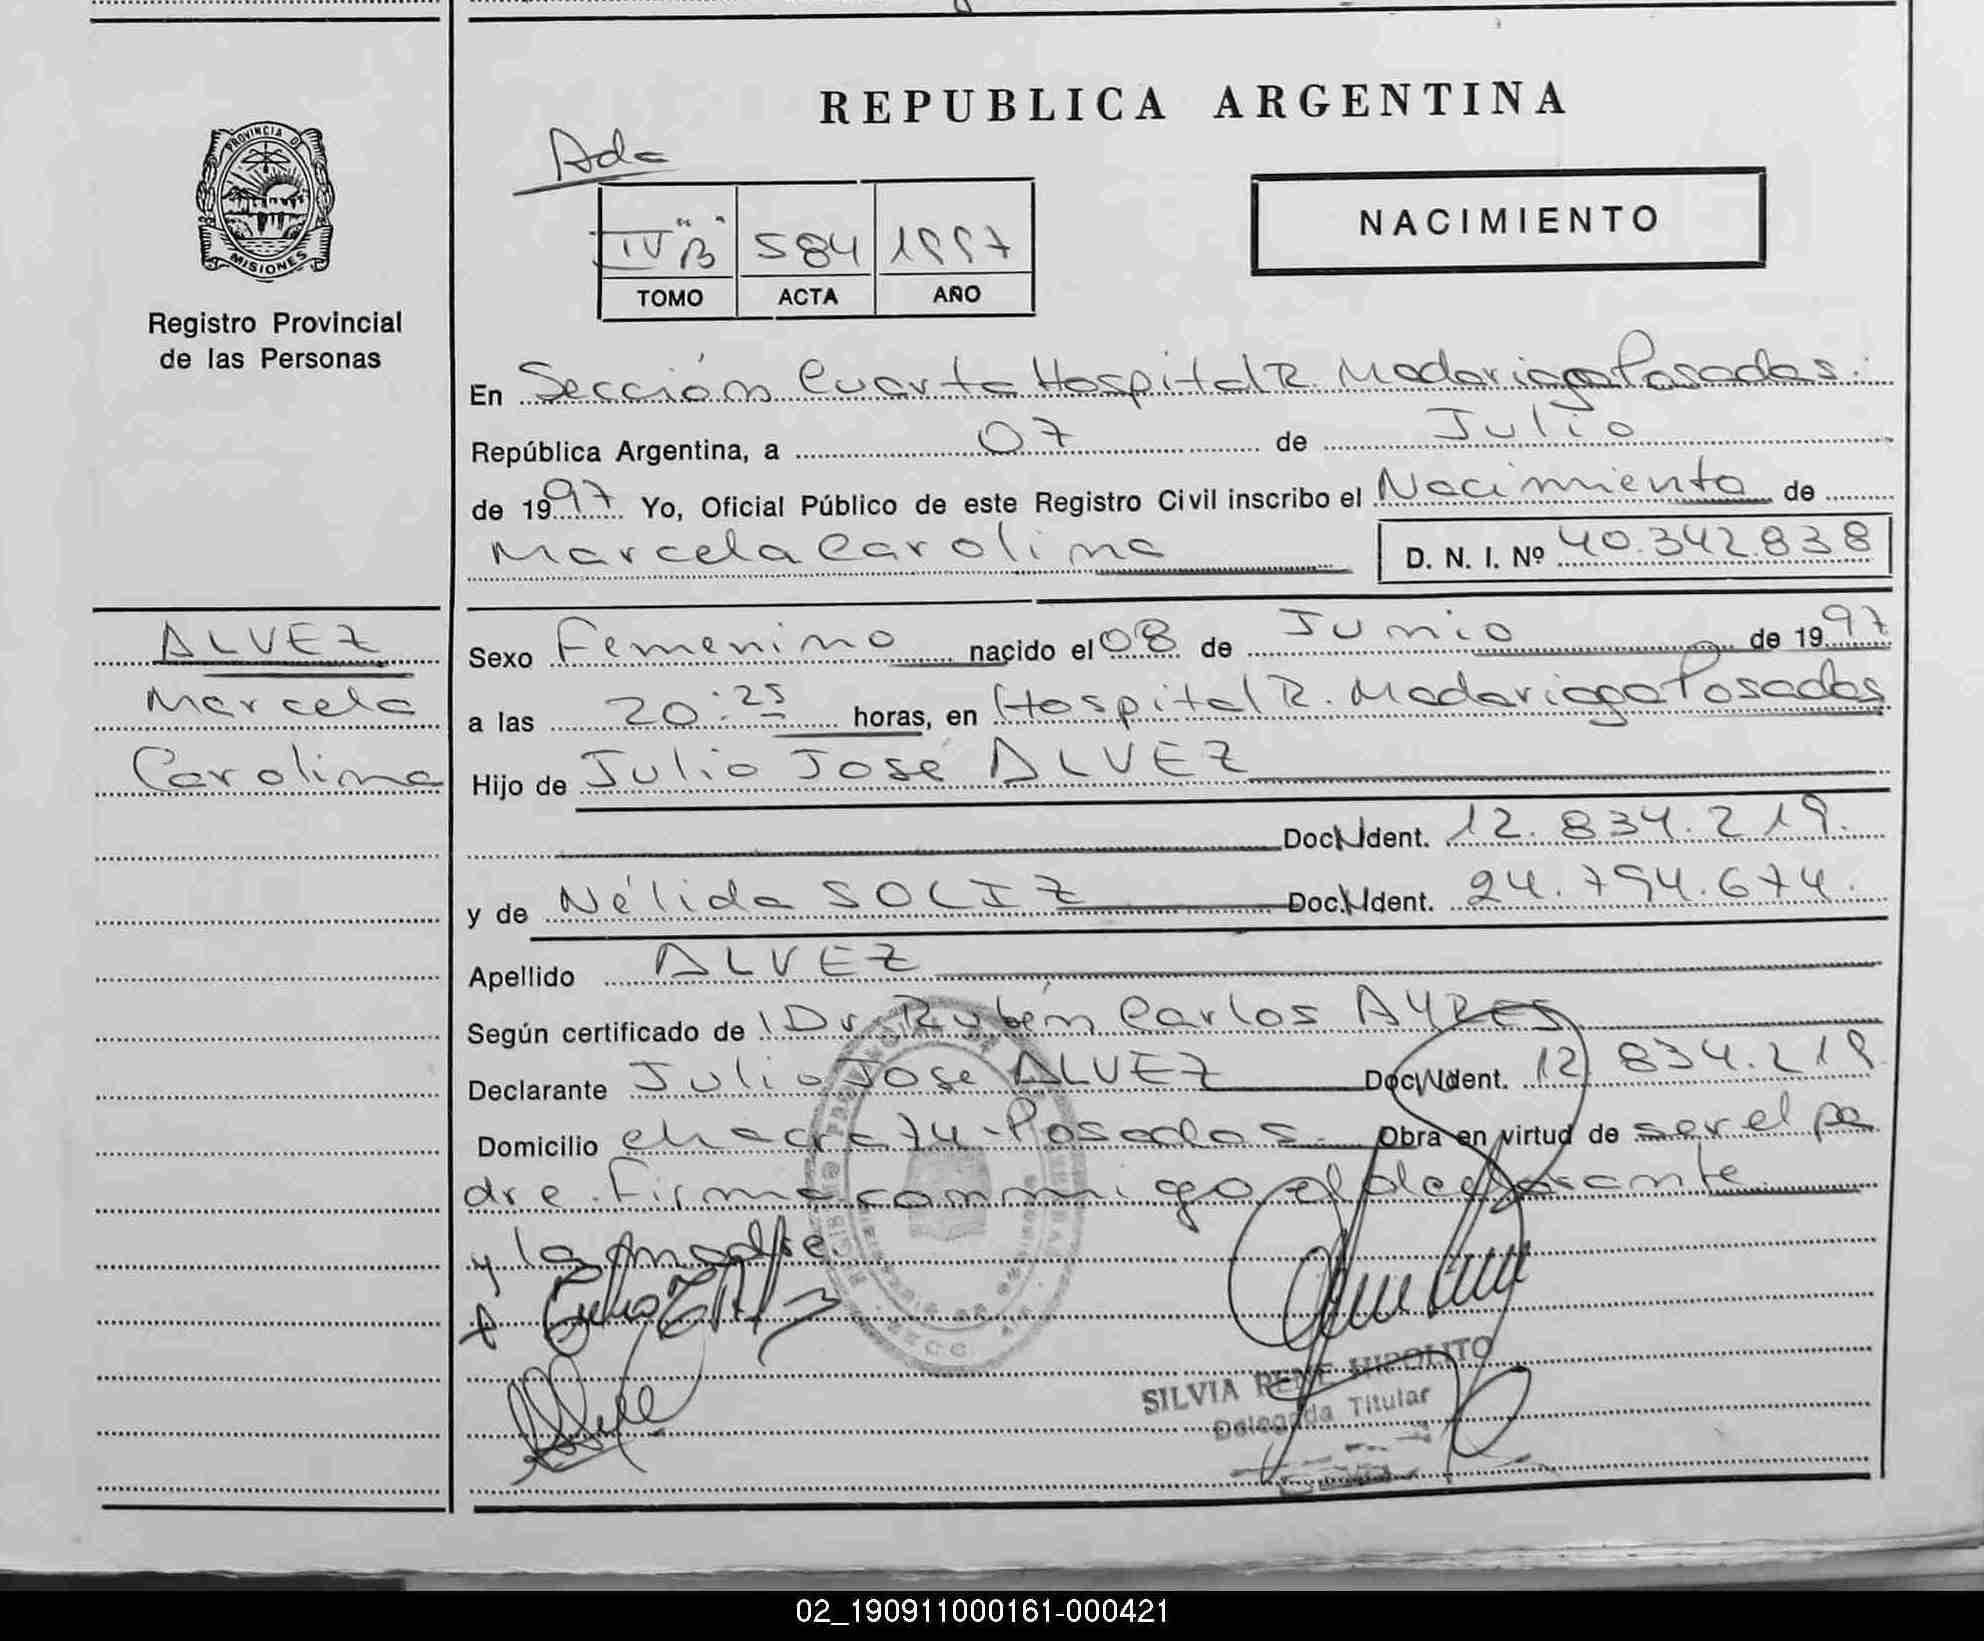 REPUBLICA ARGENTINA
PROVINCIA DE
MISIONES
Registro Provincial
de las Personas
NACIMIENTO
IV "B" 584 1997
TOMO ACTA AÑO
En Sección Cuarta Hospital R. Madariaga Posadas.
República Argentina, a 07 de Julio
de 1997 Yo, Oficial Público de este Registro Civil inscribo el Nacimiento de
Marcela Carolina D. N. I. Nº 40.342.838
ALVEZ
Marcela
Carolina
Sexo Femenino nacido el 08 de Junio de 1997
a las 20:25 horas, en Hospital R. Madariaga Posadas
Hijo de Julio José ALVEZ
Doc. Ident. 12.834.219.
y de Nélida SOLIZ Doc. Ident. 24.794.674.
Apellido ALVEZ
Según certificado de Dr Rubén Carlos AYRES
Declarante Julio Jose ALVEZ Doc. Ident. 12 834.219
Domicilio chacra 74 - Posadas. Obra en virtud de ser el pa
dre. Firma conmigo el declarante
y la madre
SILVIA RENE HIPOLITO
Delegada Titular
02_190911000161-000421